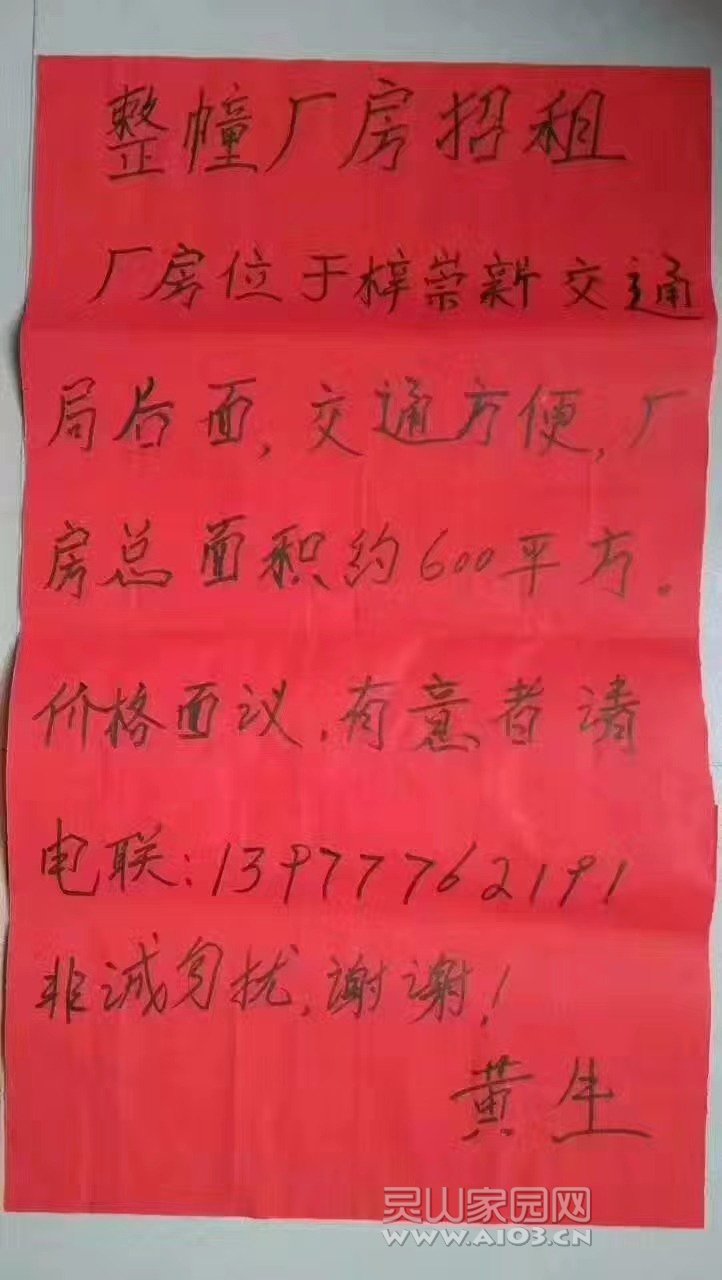 整幢厂房招租
厂房位于梓崇新交通
局后面,交通方便,厂
房总面积约600平方。
价格面议,有意者请
电联:13977762191
非诚勿扰,谢谢!
黄生
灵山家园网
www.A103.CN